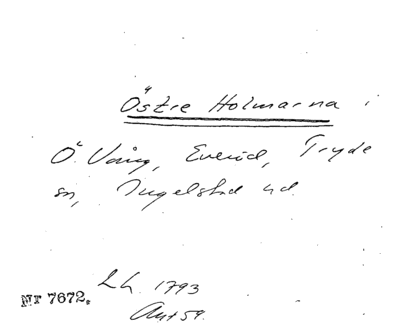 Östre Holmarna i
Ö. Vång, Everöd, Tryde
sn, Ingelstad hd.
LL. 1793
Akt 59.
Nr 7672.